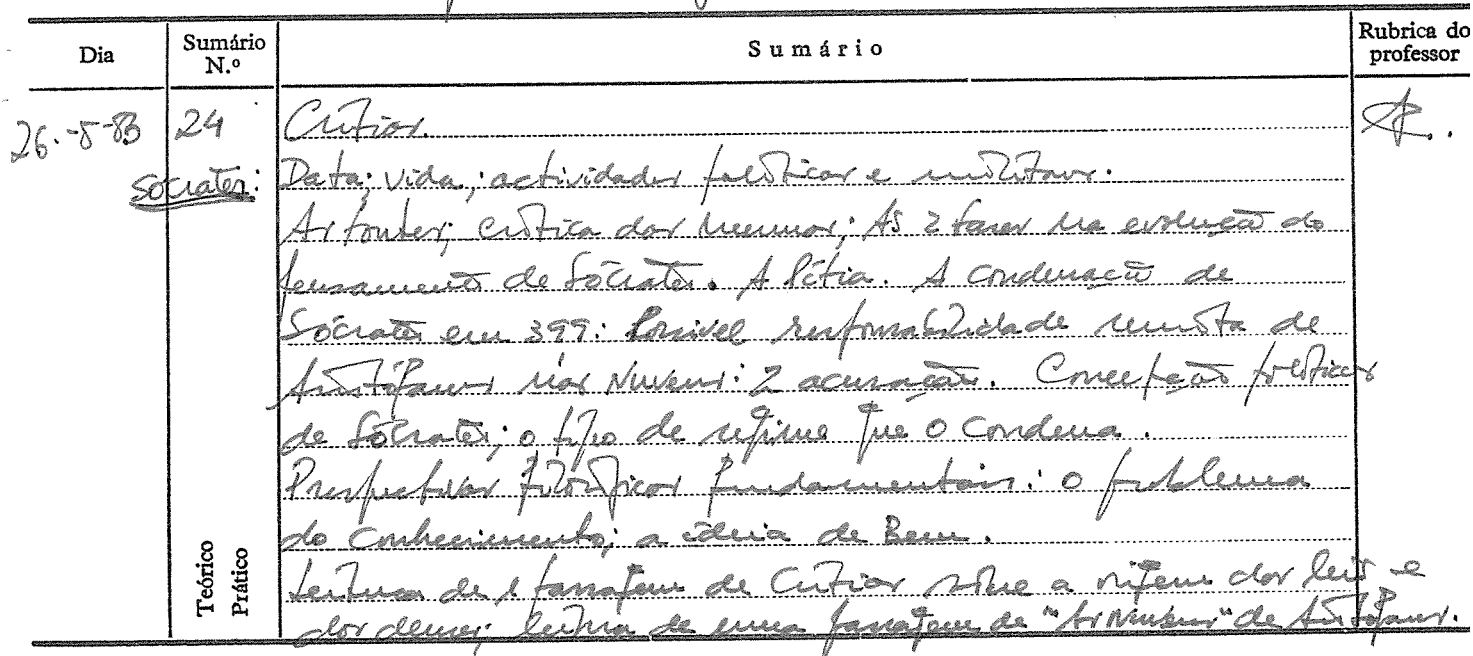 Dia Sumário N.º Sumário Rubrica do professor
26-5-83 24 Crítias.
Sócrates: Data; vida; actividades políticas e militares.
As fontes; crítica das mesmas; As 2 fases na evolução do
pensamento de Sócrates. A Pítia. A condenação de
Sócrates em 399: Possível responsabilidade remota de
Aristófanes nas Nuvens: 2 acusações. Concepções políticas
de Sócrates; o tipo de regime que o condena.
Perspectivas filosóficas fundamentais: o problema
do conhecimento; a ideia de Bem.
Leitura de 1 passagem de Crítias sobre a origem das leis e
dos deuses; leitura de uma passagem de "As Nuvens" de Aristófanes.
Teórico
Prático